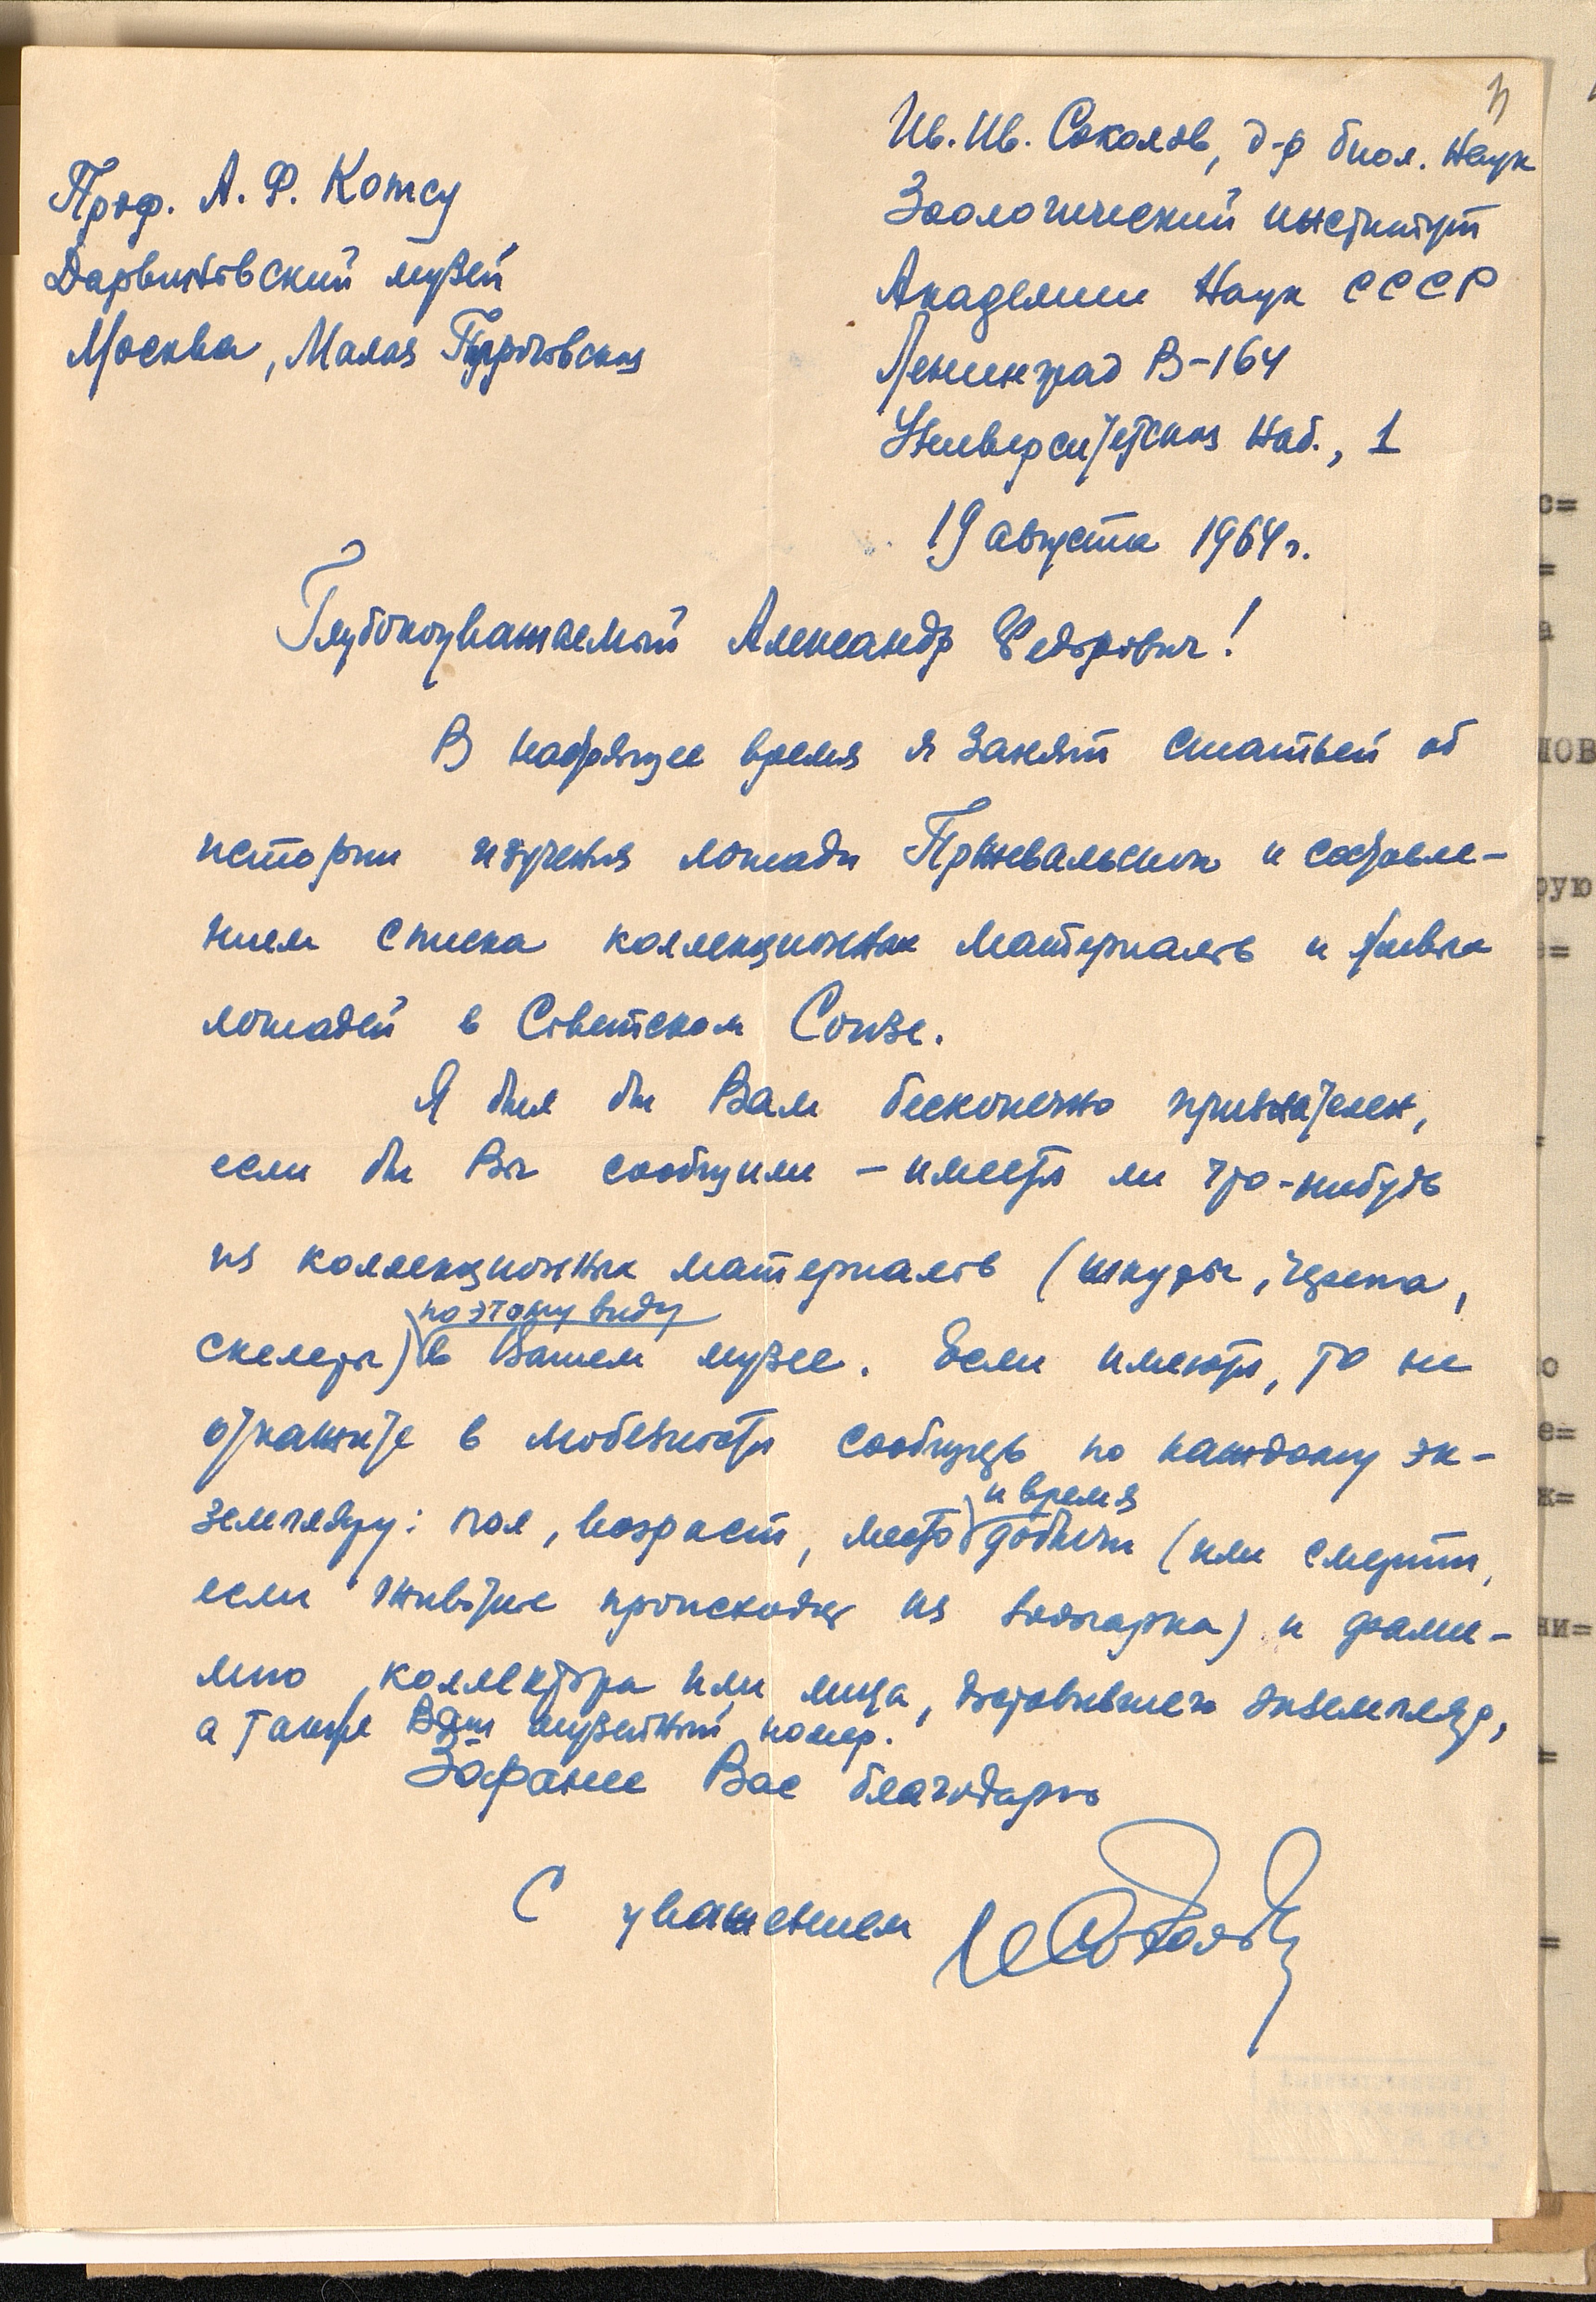 Проф. А. Ф. Котсу
Дарвиновский музей
Москва, Малая Пироговская
Ив. Ив. Соколов, д-р биол. Наук
Зоологический институт
Академии Наук СССР
Ленинград В-164
Университетская Наб., 1
19 августа 1964 г.
Глубокоуважаемый Александр Федорович!
В настоящее время я занят статьей об
истории изучения лошади Пржевальского и составле-
нием списка коллекционных материалов и живых
лошадей в Советском Союзе.
Я был бы Вам бесконечно признателен,
если бы Вы сообщили – имеется ли что-нибудь
из коллекционных материалов (шкуры, черепа,
по этому виду
скелеты) в Вашем музее. Если имеются, то не
откажите в любезности сообщить по каждому эк-
и время
земпляру: пол, возраст, место добычи (или смерти,
если животные происходят из зоопарка) и фами-
лию коллектора или лица, доставившего экземпляр,
а также Ваш музейный номер.
Заранее Вас благодарю
С уважением И Соколов
с=
=
а
лов
рую
е=
о
е=
ж=
ни=
=
=